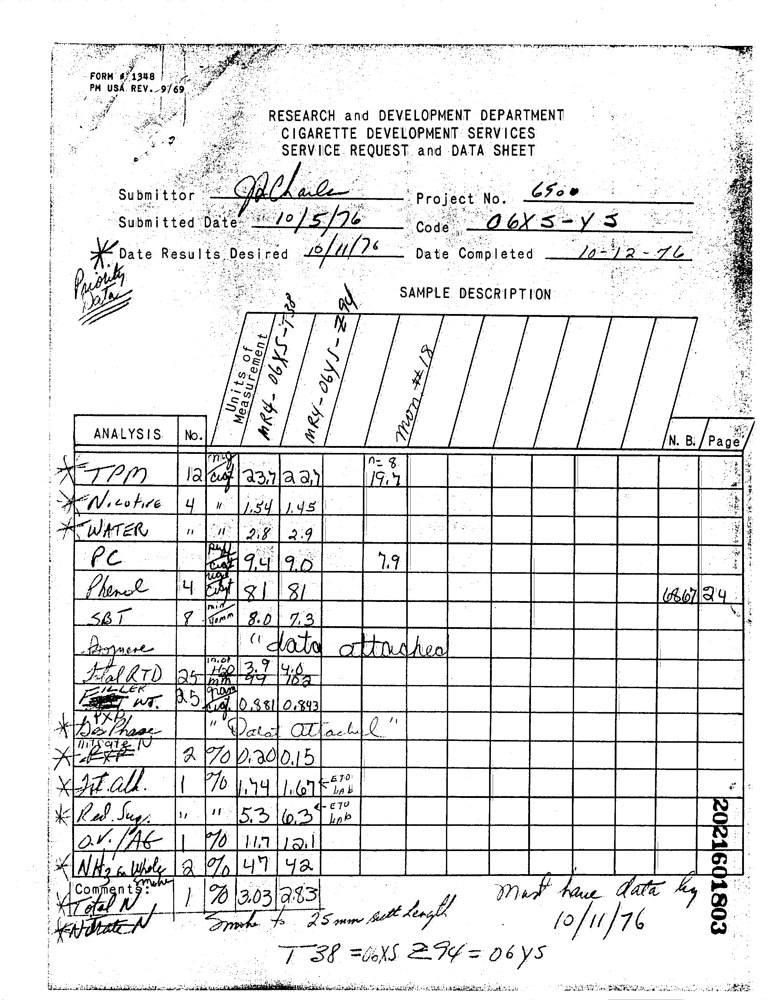 FORM # 1348
PM USA REV. 9/69
RESEARCH and DEVELOPMENT DEPARTMENT
CIGARETTE DEVELOPMENT SERVICES
SERVICE REQUEST and DATA SHEET
Submittor JDCharles Project No. 6500
Submitted Date 10/5/76 Code 06XS-YS
* Date Results Desired 10/11/76 Date Completed 10-12-76
Priority
Data
SAMPLE DESCRIPTION
Units of Measurement MR4-06XS-T38 MR4-06YS-Z94 Mon. #18
ANALYSIS No. N. B. Page
* TPM 12 mg/cigt 23.7 22.7 n=8 19.7
* Nicotine 4 " 1.54 1.45
* WATER " " 2.8 2.9
PC puff/cigt 9.4 9.0 7.9
Phenol 4 cigt 81 81 6867 24
SBT 8 min/40mm 8.0 7.3
"data attached
Total RTD 25 in. of H2O 3.9 4.0
mm 99 102
FILLER WT. 25 gram/cig. 0.881 0.843
TXP
* Gas Phase "Data Attached"
* Nitrate N 2 % 0.20 0.15
* Tot. Alk. 1 % 1.74 1.67 ← ETO LAB
* Red. Sug. " " 5.3 6.3 ← ETO LAB
O.V./AG 1 % 11.7 12.1
* NH3 in Whole smoke 2 % 47 42
Comments:
* Total N 1 % 3.03 2.83
* Nitrate N Smoke to 25 mm butt length
Must have data by
10/11/76
T38 = 06XS Z94 = 06YS
2021601803